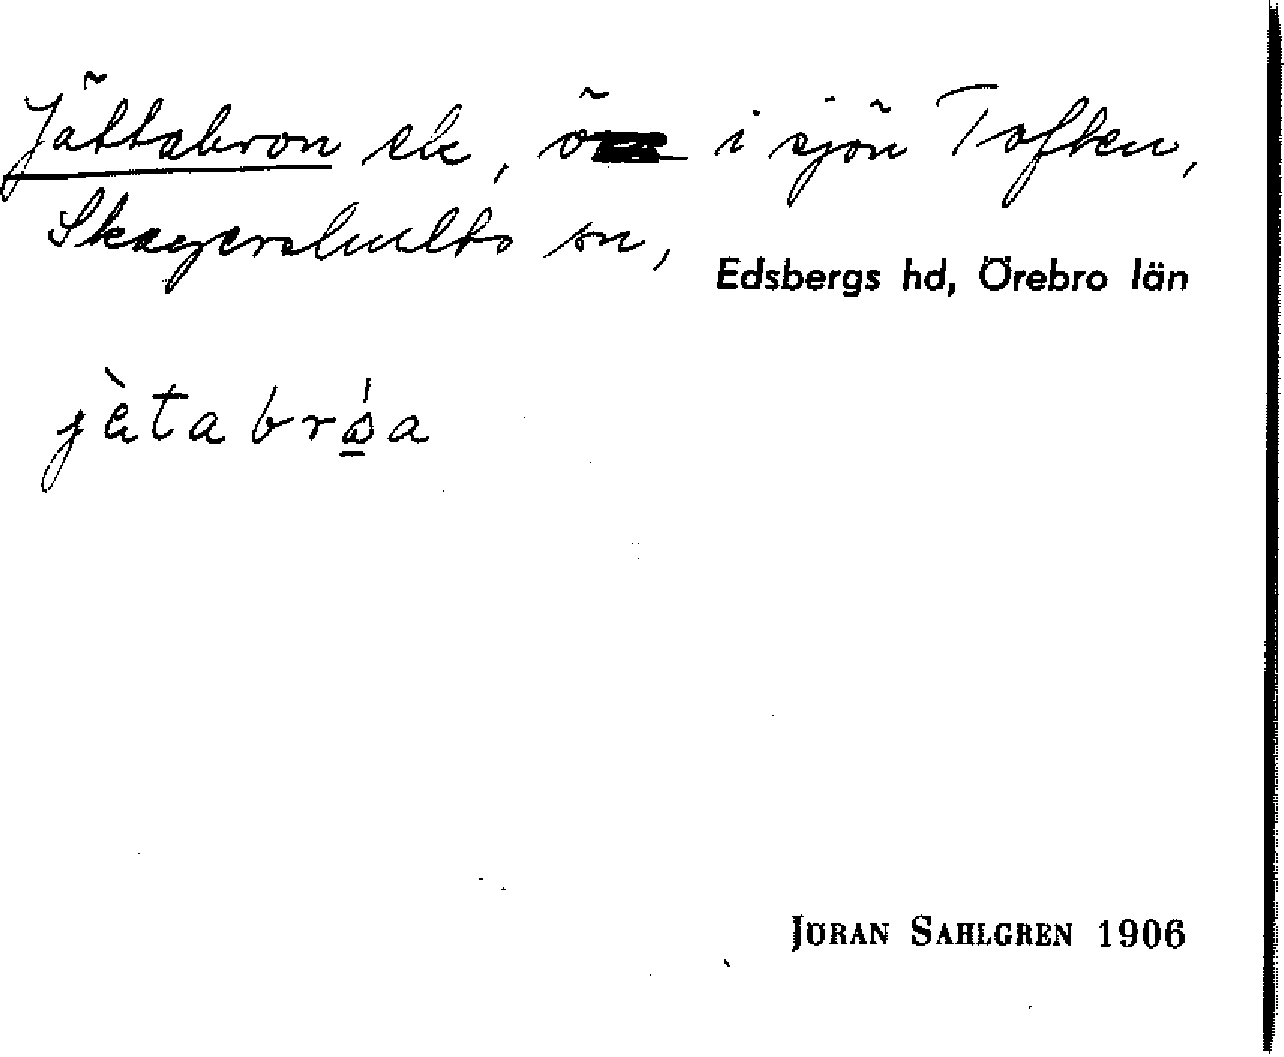 Jättabron sk, ö i sjön Toften,
Skagershults sn,
Edsbergs hd, Örebro län
JÖRAN SAHLGREN 1906